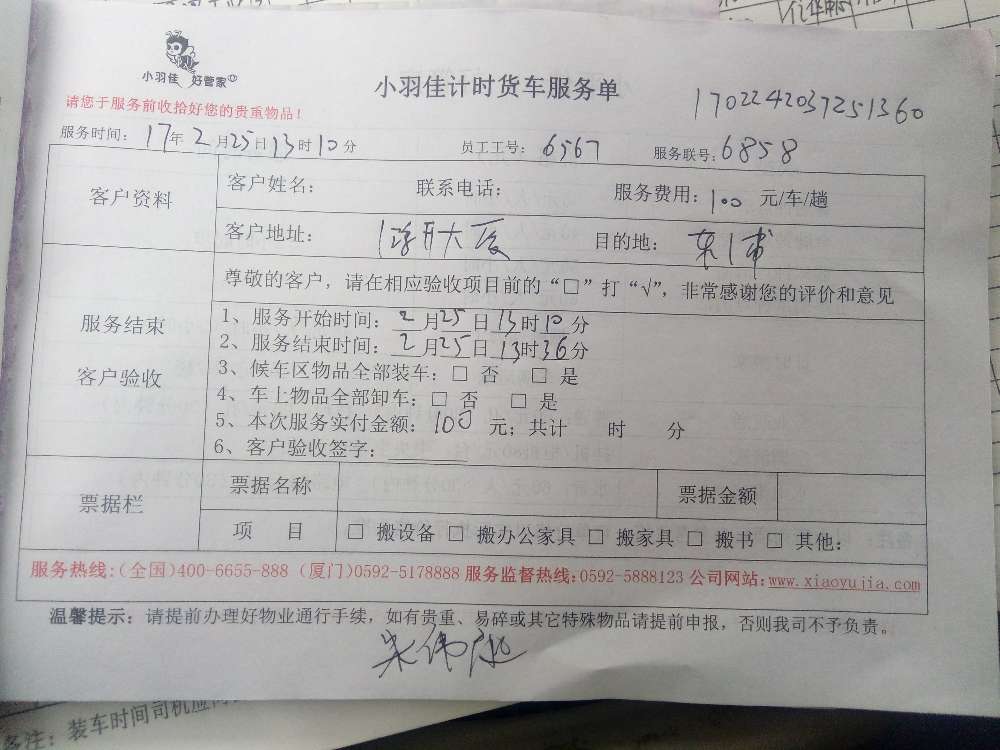 小羽佳 好管家
小羽佳计时货车服务单
1702242037251360
请您于服务前收拾好您的贵重物品！
服务时间：17年2月25日13时10分 员工工号：6567 服务联号：6858
客户资料
客户姓名： 联系电话： 服务费用：100 元/车/趟
客户地址： 大厦 目的地：东浦
服务结束
客户验收
尊敬的客户，请在相应验收项目前的“□”打“√”，非常感谢您的评价和意见
1、服务开始时间：2月25日13时10分
2、服务结束时间：2月25日13时36分
3、候车区物品全部装车：□ 否 □ 是
4、车上物品全部卸车：□ 否 □ 是
5、本次服务实付金额：100 元；共计 时 分
6、客户验收签字：
票据栏
票据名称 票据金额
项 目 □ 搬设备 □ 搬办公家具 □ 搬家具 □ 搬书 □ 其他：
服务热线：(全国)400-6655-888 (厦门)0592-5178888 服务监督热线：0592-5888123 公司网站：www.xiaoyujia.com
温馨提示：请提前办理好物业通行手续，如有贵重、易碎或其它特殊物品请提前申报，否则我司不予负责。
备注：装车时间司机应